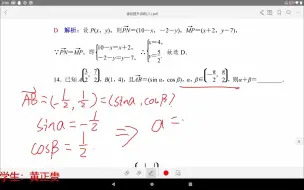 D 解析:设 P(x, y),则PN=(10-x, -2-y), MP=(x+2, y-7),
∵PN=MP,即{10-x=x+2, -2-y=y-7,∴{x=4, y=5/2. 故选 D.
14. 已知 A(3/2, 7/2), B(1, 4), 且AB=(sin α, cos β), α, β∈(-π/2, π/2), 则α+β=
AB=(-1/2, 1/2)=(sinα, cosβ)
sinα=-1/2
cosβ=1/2
⇒ α=
学生:黄正贵